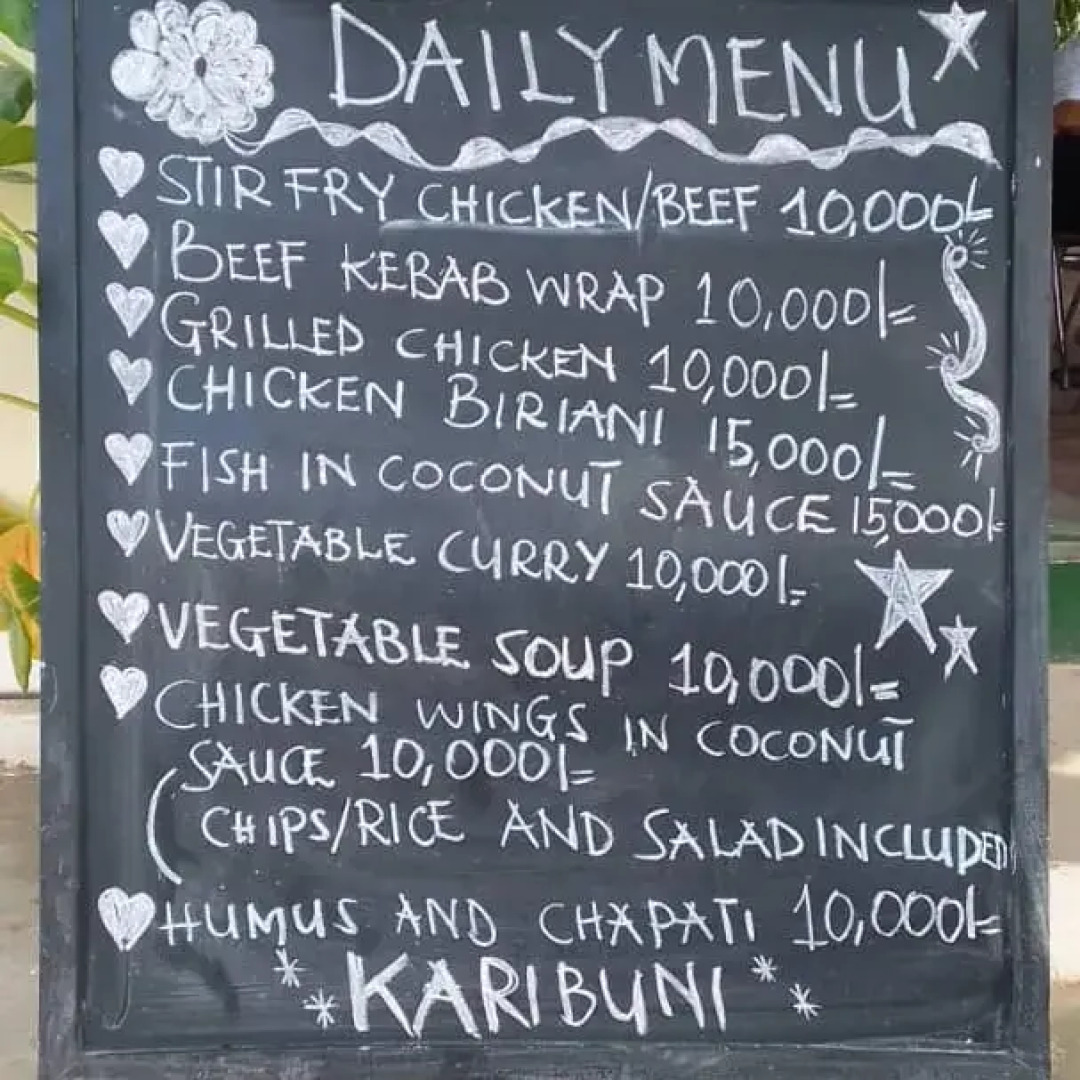 DAILY MENU
STIR FRY CHICKEN/BEEF 10,000/=
BEEF KEBAB WRAP 10,000/=
GRILLED CHICKEN 10,000/=
CHICKEN BIRIANI 15,000/=
FISH IN COCONUT SAUCE 15,000/=
VEGETABLE CURRY 10,000/=
VEGETABLE SOUP 10,000/=
CHICKEN WINGS IN COCONUT
SAUCE 10,000/=
(CHIPS/RICE AND SALAD INCLUDED)
HUMUS AND CHAPATI 10,000/=
KARIBUNI